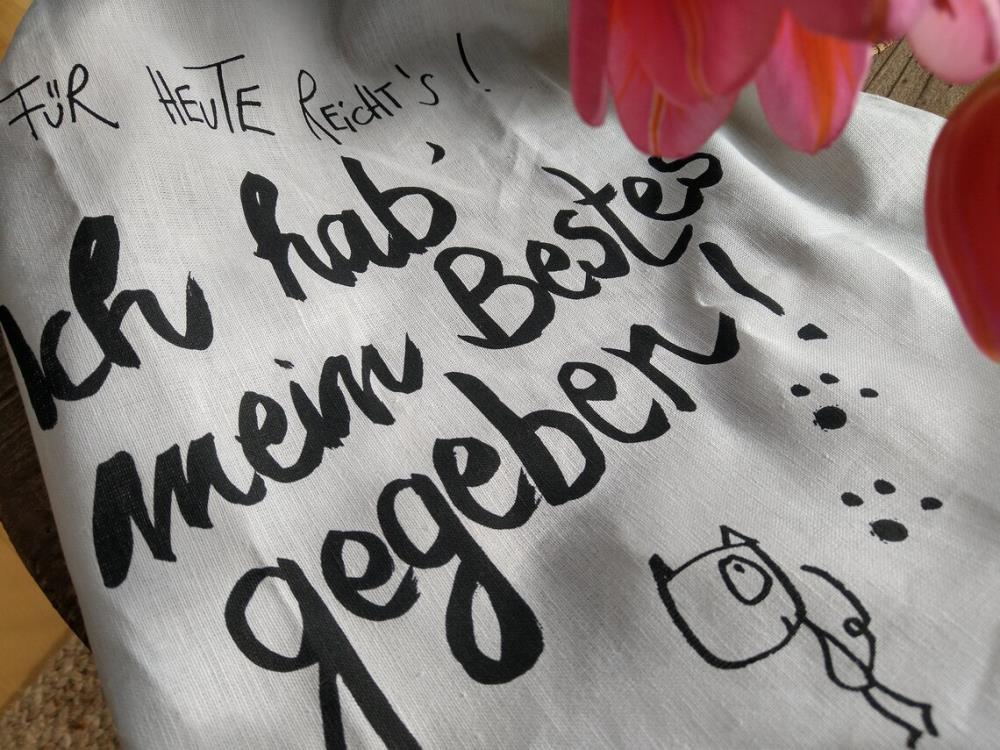 FÜR HEUTE REICHT'S!
Ich hab'
mein Bestes
gegeben!